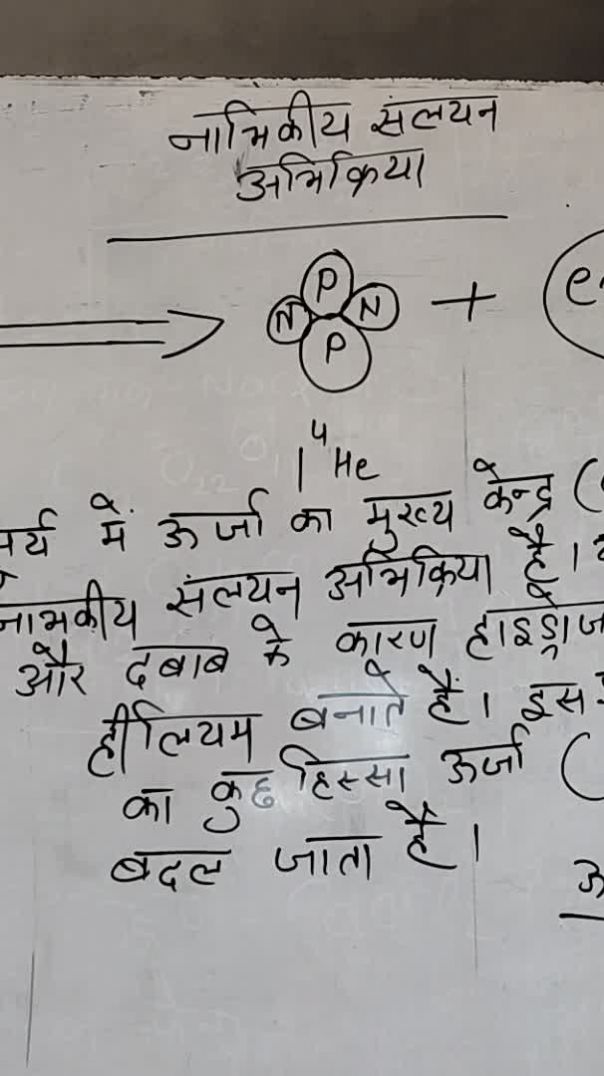 नाभिकीय संलयन
अभिक्रिया
P
N N + e
P
4
He
में ऊर्जा का मुख्य केन्द्र (
संलयन अभिक्रिया है।
और दबाब के कारण
हीलियम बनाते हैं। इस
का कुछ हिस्सा ऊर्जा (
बदल जाता है।